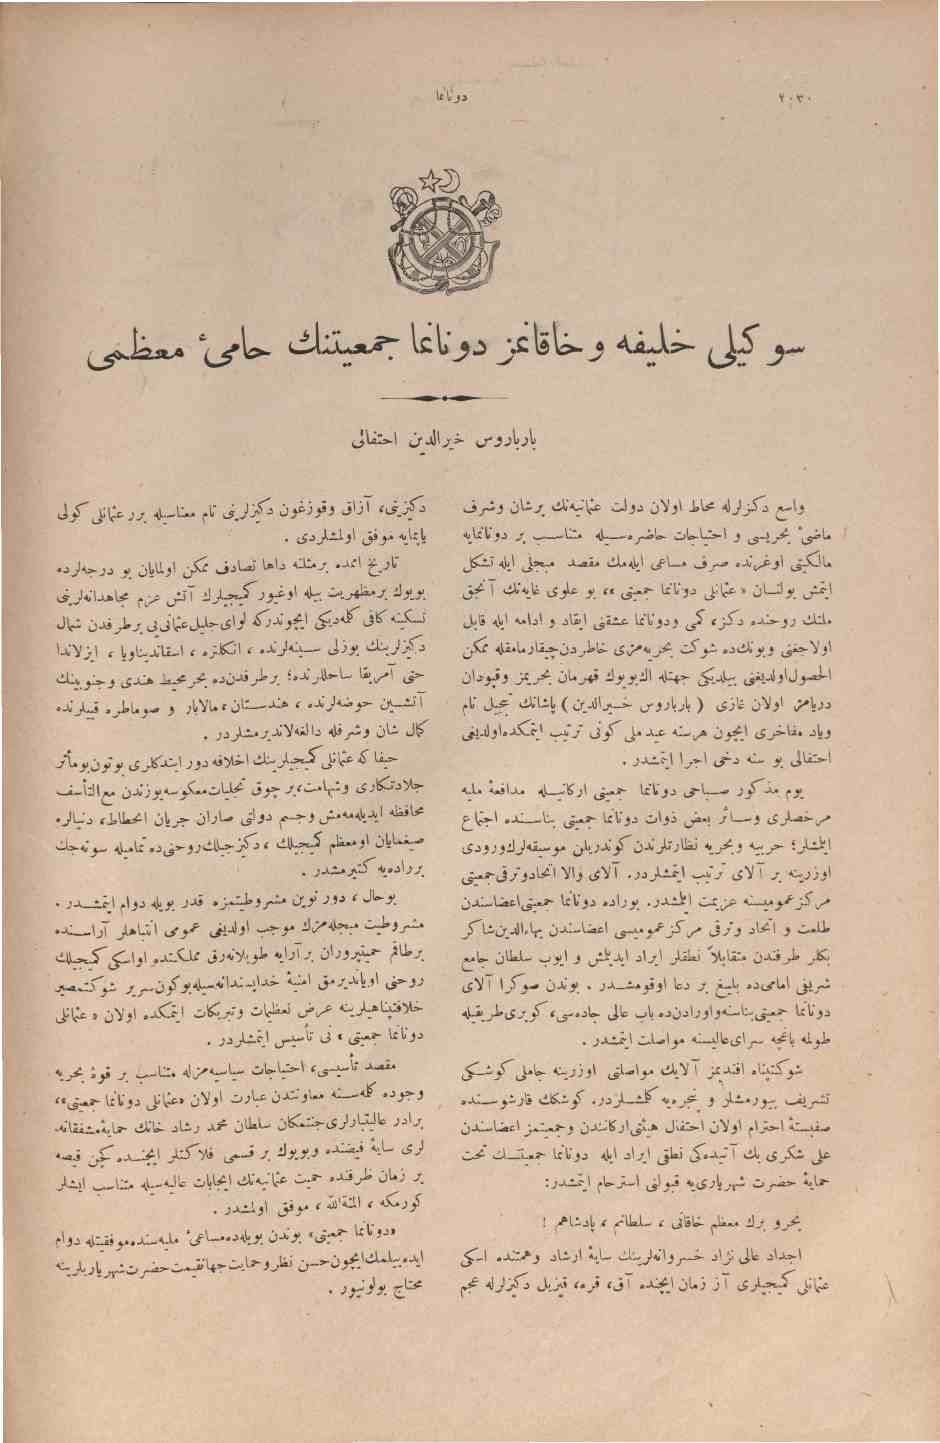 ٢٠٣٠
دونانما
سوكيلى خليفه و خاقانمز دونانما جمعيتنك حامئ معظمى
بارباروس خيرالدين احتفالى
واسع دكزلرله محاط اولان دولت عثمانيه‌نك پر شان وشرف
ماضئ بحريسى و احتياجات حاضره‌سيله متناسب بر دونانمايه
مالكيتى اوغرنده صرف مساعى ايله‌مك مقصد مبجلى ايله تشكل
ايتمش بولنان « عثمانلى دونانما جمعيتى »، بو علوى غايه‌نك آنجق
ملتك روحنده دكز، كمى ودونانما عشقنى ايقاد و ادامه ايله قابل
اولاجغنى وبونك‌ده شوكت بحريه‌مزى خاطردن‌چيقارمامقله ممكن
الحصول‌اولديغنى بيلديكى جهتله اك‌بويوك قهرمان بحريمز وقپودان
دريامز اولان غازى ( بارباروس خيرالدين ) پاشانك تبجيل نام
وياد مفاخرى ايچون هرسنه عيد ملى كونى ترتيب ايتمكده‌اولديغى
احتفالى بو سنه دخى اجرا ايتمشدر .
يوم مذكور صباحى دونانما جمعيتى اركانيله مدافعۀ مليه
مرخصلرى وسائر بعض ذوات دونانما جمعيتى بناسنده اجتماع
ايتمشلر؛ حربيه وبحريه نظارتلرندن كوندريلن موسيقه‌لرك‌ورودى
اوزرينه بر آلاى ترتيب ايتمشلردر. آلاى والا اتحادوترقى‌جمعيتى
مركز عموميسنه عزيمت ايتمشدر. بوراده دونانما جمعيتى‌اعضاسندن
طلعت و اتحاد وترقى مركز عموميسى اعضاسندن بهاءالدين‌شاكر
بكلر طرفندن متقابلاً نطقلر ايراد ايديلمش و ايوب سلطان جامع
شريفى امامى‌ده بليغ بر دعا اوقومشدر . بوندن صوكرا آلاى
دونانما جمعيتى‌بناسنه‌واورادن‌ده باب عالى جاده‌سى، كوپرى‌طريقيله
طولمه باغچه سراى‌عاليسنه مواصلت ايتمشدر .
شوكتپناه افنديمز آلايك مواصلتى اوزرينه جاملى كوشكى
تشريف بيورمشلر و پنجره‌يه كلمشلردر. كوشكك قارشوسنده
صفبستۀ احترام اولان احتفال هيئتى‌اركانندن وجمعيتمز اعضاسندن
على شكرى بك آتيده‌كى نطقى ايراد ايله دونانما جمعيتنك تحت
حمايۀ حضرت شهريارى‌يه قبولنى استرحام ايتمشدر:
بحر و برك معظم خاقانى ، سلطانم ، پادشاهم !
اجداد عالى نژاد خسروانه‌لرينك سايۀ ارشاد وهمتنده اسكى
عثمانلى كميجيلرى آز زمان ايچنده آق، قره، قيزيل دكيزلرله عجم
دكيزينى، آزاق وقوزغون دكيزلرينى تام معناسيله برر عثمانلى كولى
ياپمايه موفق اولمشلردى .
تاريخ اممده برمثلنه داها تصادف ممكن اولمايان بو درجه‌لرده
بويوك برمظهريت بيله او غيور كميجيلرك آتش عزم مجاهدانه‌لرينى
تسكينه كافى كلمه‌ديكى ايچوندركه لواى‌جليل‌عثمانى‌يى برطرفدن شمال
دكيزلرينك بوزلى سينه‌لرنده ، انكلتره ، اسقانديناويا ، ايزلاندا
حتى آمريقا ساحللرنده؛ برطرفدن‌ده بحرمحيط هندى وجنوبينك
آتشين حوضه‌لرنده ، هندستان، مالابار و صوماطره قييلرنده
كمال شان وشرفله دالغه‌لانديرمشلردر .
حيفا كه عثمانلى كميجيلرينك اخلافه دور ايتدكلرى بوتون‌بومآثر
جلادتكارى وشهامت، بر چوق تجليات‌معكوسه‌يوزندن مع‌التأسف
محافظه ايديله‌مه‌مش وجسم دولتى صاران جريان انحطاط، دنيالره
صيغمايان اومعظم كميجيلك ، دكيزجيلك‌روحنى‌ده تماميله سونه‌جك
برراده‌يه كتيرمشدر .
بوحال ، دور نوين مشروطيتمزه قدر بويله دوام ايتمشدر .
مشروطيت مبجله‌مزك موجب اولديغى عمومى انتباهلر آراسنده
برطاقم حميتپروران بر آرايه طوپلانه‌رق مملكتده اواسكى كميجيلك
روحنى اويانديرمق امنيۀ خداپسندانه‌سيله‌بوكون‌سرير شوكتمصير
خلافتپناهيلرينه عرض تعظيمات وتبريكات ايتمكده اولان « عثمانلى
دونانما جمعيتى » نى تأسيس ايتمشلردر .
مقصد تأسيسى، احتياجات سياسيه‌مزله متناسب بر قوۀ بحريه
وجوده كلمه‌سنه معاونتدن عبارت اولان «عثمانلى دونانما جمعيتى»،
برادر عاليتبارلرى‌جنتمكان سلطان محمد رشاد خانك حمايۀمشفقانه‌
لرى سايۀ فيضنده وبويوك بر قسمى فلاكتلر ايچنده كچن قيصه
بر زمان ظرفنده حميت عثمانيه‌نك ايجابات عاليه‌سيله متناسب ايشلر
كورمكه ، المنةالله ، موفق اولمشدر .
«دونانما جمعيتى» بوندن بويله‌ده‌مساعئ مليه‌سنده‌موفقيتله دوام
ايده‌بيلمك‌ايچون‌حسن نظر وحمايت‌جهانقيمت‌حضرت‌شهريارىلرينه
محتاج بولونيور .